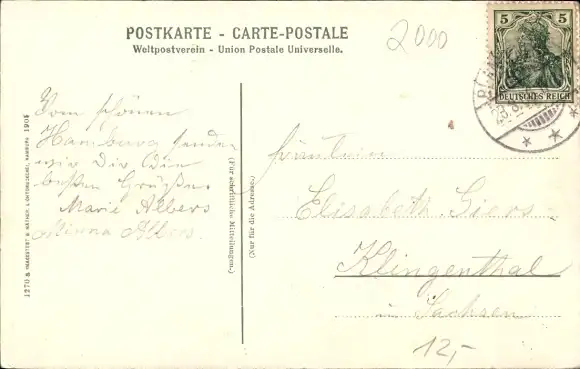 POSTKARTE - CARTE-POSTALE
Weltpostverein - Union Postale Universelle.
2000
5 5
DEUTSCHES REICH
Vom schönen
Hamburg senden
wir Dir die
besten Grüße.
Marie Albers
Minna Albers.
(Für schriftliche Mitteilungen.)
(Nur für die Adresse.)
Fräulein
Elisabeth Giers
Klingenthal
in Sachsen
12,-